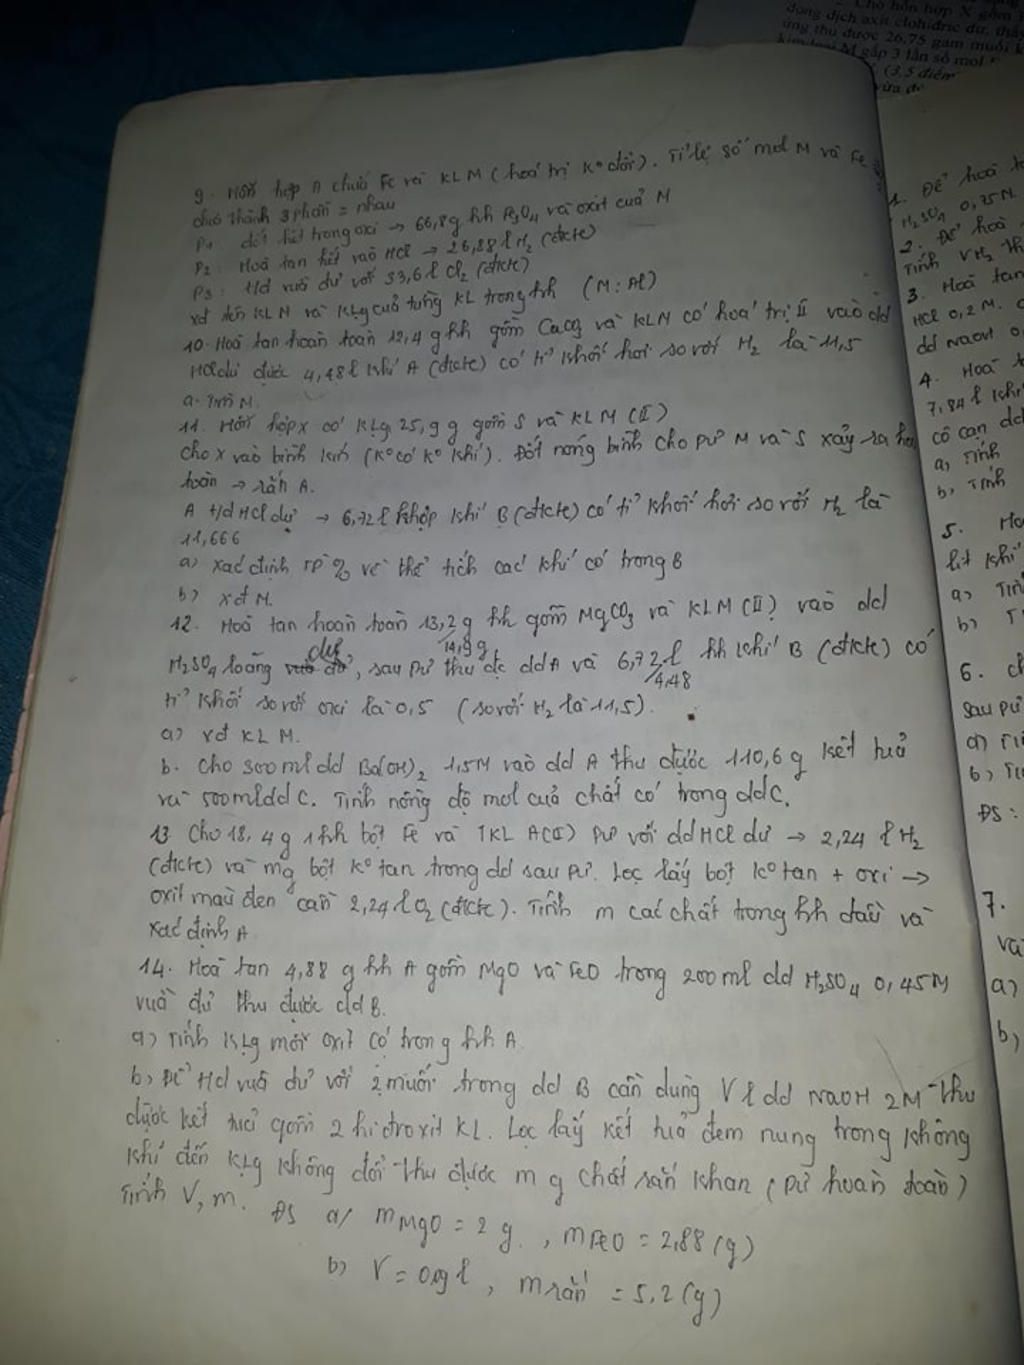 Cho hỗn hợp X gồm
dung dịch axit clohiđric dư, thấy
ứng thu được 26,75 gam muối
kim loại M gấp 3 lần số mol
(3,5 điểm
vừa đủ
9. Hỗn hợp A chứa Fe và KLM (hoá trị K° đổi). Tỉ lệ số mol M và Fe
chia thành 3 phần = nhau
P1: đốt hết trong oxi → 66,8g hh Fe3O4 và oxit của M
P2: Hoà tan hết vào HCl → 26,88 l H2 (đktc)
P3: t/d vừa đủ với 33,6 l Cl2 (đktc)
xđ tên KL M và KLg của từng KL trong hh (M: Al)
10. Hoà tan hoàn toàn 12,4 g hh gồm CaCO3 và KLM có hoá trị II vào dd
HCl dư được 4,48 l khí A (đktc) có tỉ khối hơi so với H2 là 11,5
a. Tìm M.
11. Hỗn hợp X có KLg 25,9 g gồm S và KLM (II)
cho X vào bình kín (K° có K° khí). Đốt nóng bình cho pư M và S xảy ra
toàn → rắn A.
A t/d HCl dư → 6,72 l hhợp khí B (đktc) có tỉ khối hơi so với H2 là
11,666
a) xác định TP % về thể tích các khí có trong B
b) xđ M.
12. Hoà tan hoàn toàn 13,2 g hh gồm MgCO3 và KLM (II) vào dd
14,9 g
H2SO4 loãng dư, sau pư thu đc ddA và 6,72 l hh khí B (đktc) có
4,48
tỉ khối so với oxi là 0,5 (so với H2 là 11,5).
a) xđ KL M.
b. Cho 300 ml dd Ba(OH)2 1,5M vào dd A thu được 110,6 g kết tuả
và 500ml dd C. Tính nồng độ mol của chất có trong dd C.
13 Cho 18,4 g 1 hh bột Fe và 1KL A(II) pư với dd HCl dư → 2,24 l H2
(đktc) và mg bột K° tan trong dd sau pư. Lọc lấy bột K° tan + oxi →
oxit màu đen cần 2,24 l O2 (đktc). Tính m các chất trong hh đầu và
xác định A
14. Hoà tan 4,88 g hh A gồm MgO và FeO trong 200 ml dd H2SO4 0,45M
vừa đủ thu được dd B.
a) Tính KLg mỗi oxit có trong hh A
b) Để t/d vừa đủ với 2 muối trong dd B cần dùng V l dd NaOH 2M thu
được kết tuả gồm 2 hiđroxit KL. Lọc lấy kết tuả đem nung trong không
khí đến KLg không đổi thu được m g chất rắn khan (pư hoàn toàn)
Tính V, m. ĐS a/ mMgO = 2 g, mFeO = 2,88 (g)
b) V = 0,09 l, m rắn = 5,2 (g)
1. Để hoà
H2SO4 0,75M
2. Để hoà
Tính VH2
3. Hoà tan
HCl 0,2 M.
dd NaOH
4. Hoà
7,84 l khí
cô cạn dd
a, Tính
b, Tính
5. Ho
lít khí
a) Tín
b) T
6. ch
sau pư
a) Tí
b) Tí
ĐS:
7.
và
a)
b)